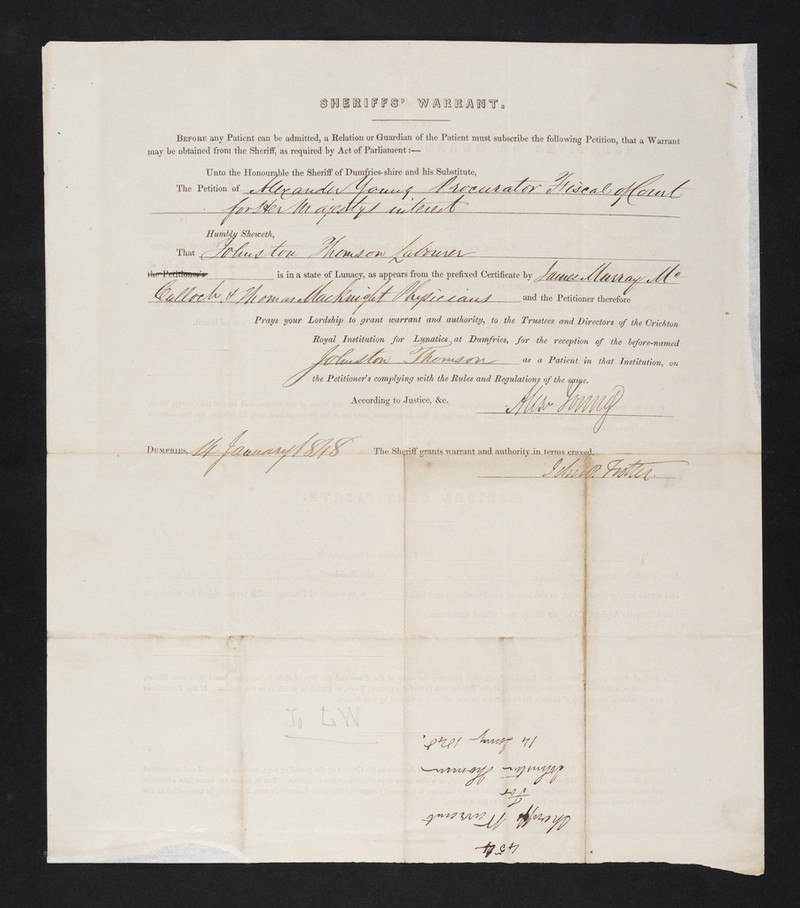 SHERIFFS' WARRANT.
BEFORE any Patient can be admitted, a Relation or Guardian of the Patient must subscribe the following Petition, that a Warrant
may be obtained from the Sheriff, as required by Act of Parliament:—
Unto the Honourable the Sheriff of Dumfries-shire and his Substitute,
The Petition of Alexander Young Procurator Fiscal of Court
for Her Majestys interest
Humbly Sheweth,
That Johnston Thomson Labourer
the Petitioner's is in a state of Lunacy, as appears from the prefixed Certificate by James Murray Mc
Culloch & Thomas MacKnight Physicians and the Petitioner therefore
Prays your Lordship to grant warrant and authority, to the Trustees and Directors of the Crichton
Royal Institution for Lunatics at Dumfries, for the reception of the before-named
Johnston Thomson as a Patient in that Institution, on
the Petitioner's complying with the Rules and Regulations of the same.
According to Justice, &c. Alexr Young
DUMFRIES, 14 January 1848 The Sheriff grants warrant and authority in terms craved.
454
Sheriffs Warrant
For
Johnston Thomson
14 Jany 1848.